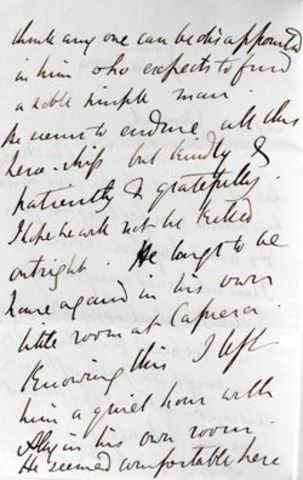 think any one can be disappointed
in him who expects to find
a noble simple man.
He seems to endure all this
hero-ship but kindly &
patiently & gratefully.
I hope he will not be killed
outright. He longs to be
home again in his own
little room at Caprera.
Knowing this I left
him a quiet hour with
Aly in his own room.
He seemed comfortable here